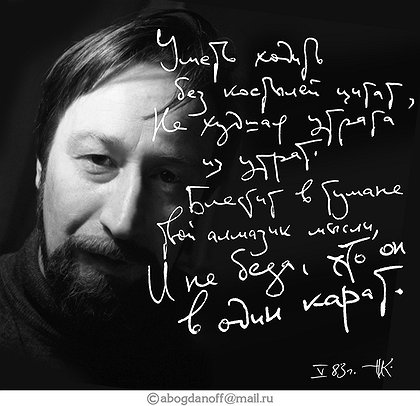 Уметь ходить
без костылей цитат,
Не худшая утрата
из утрат.
Блестит в тумане
твой алмазик мысли,
И не беда, что он
в один карат.
V 83г.
©abogdanoff@mail.ru